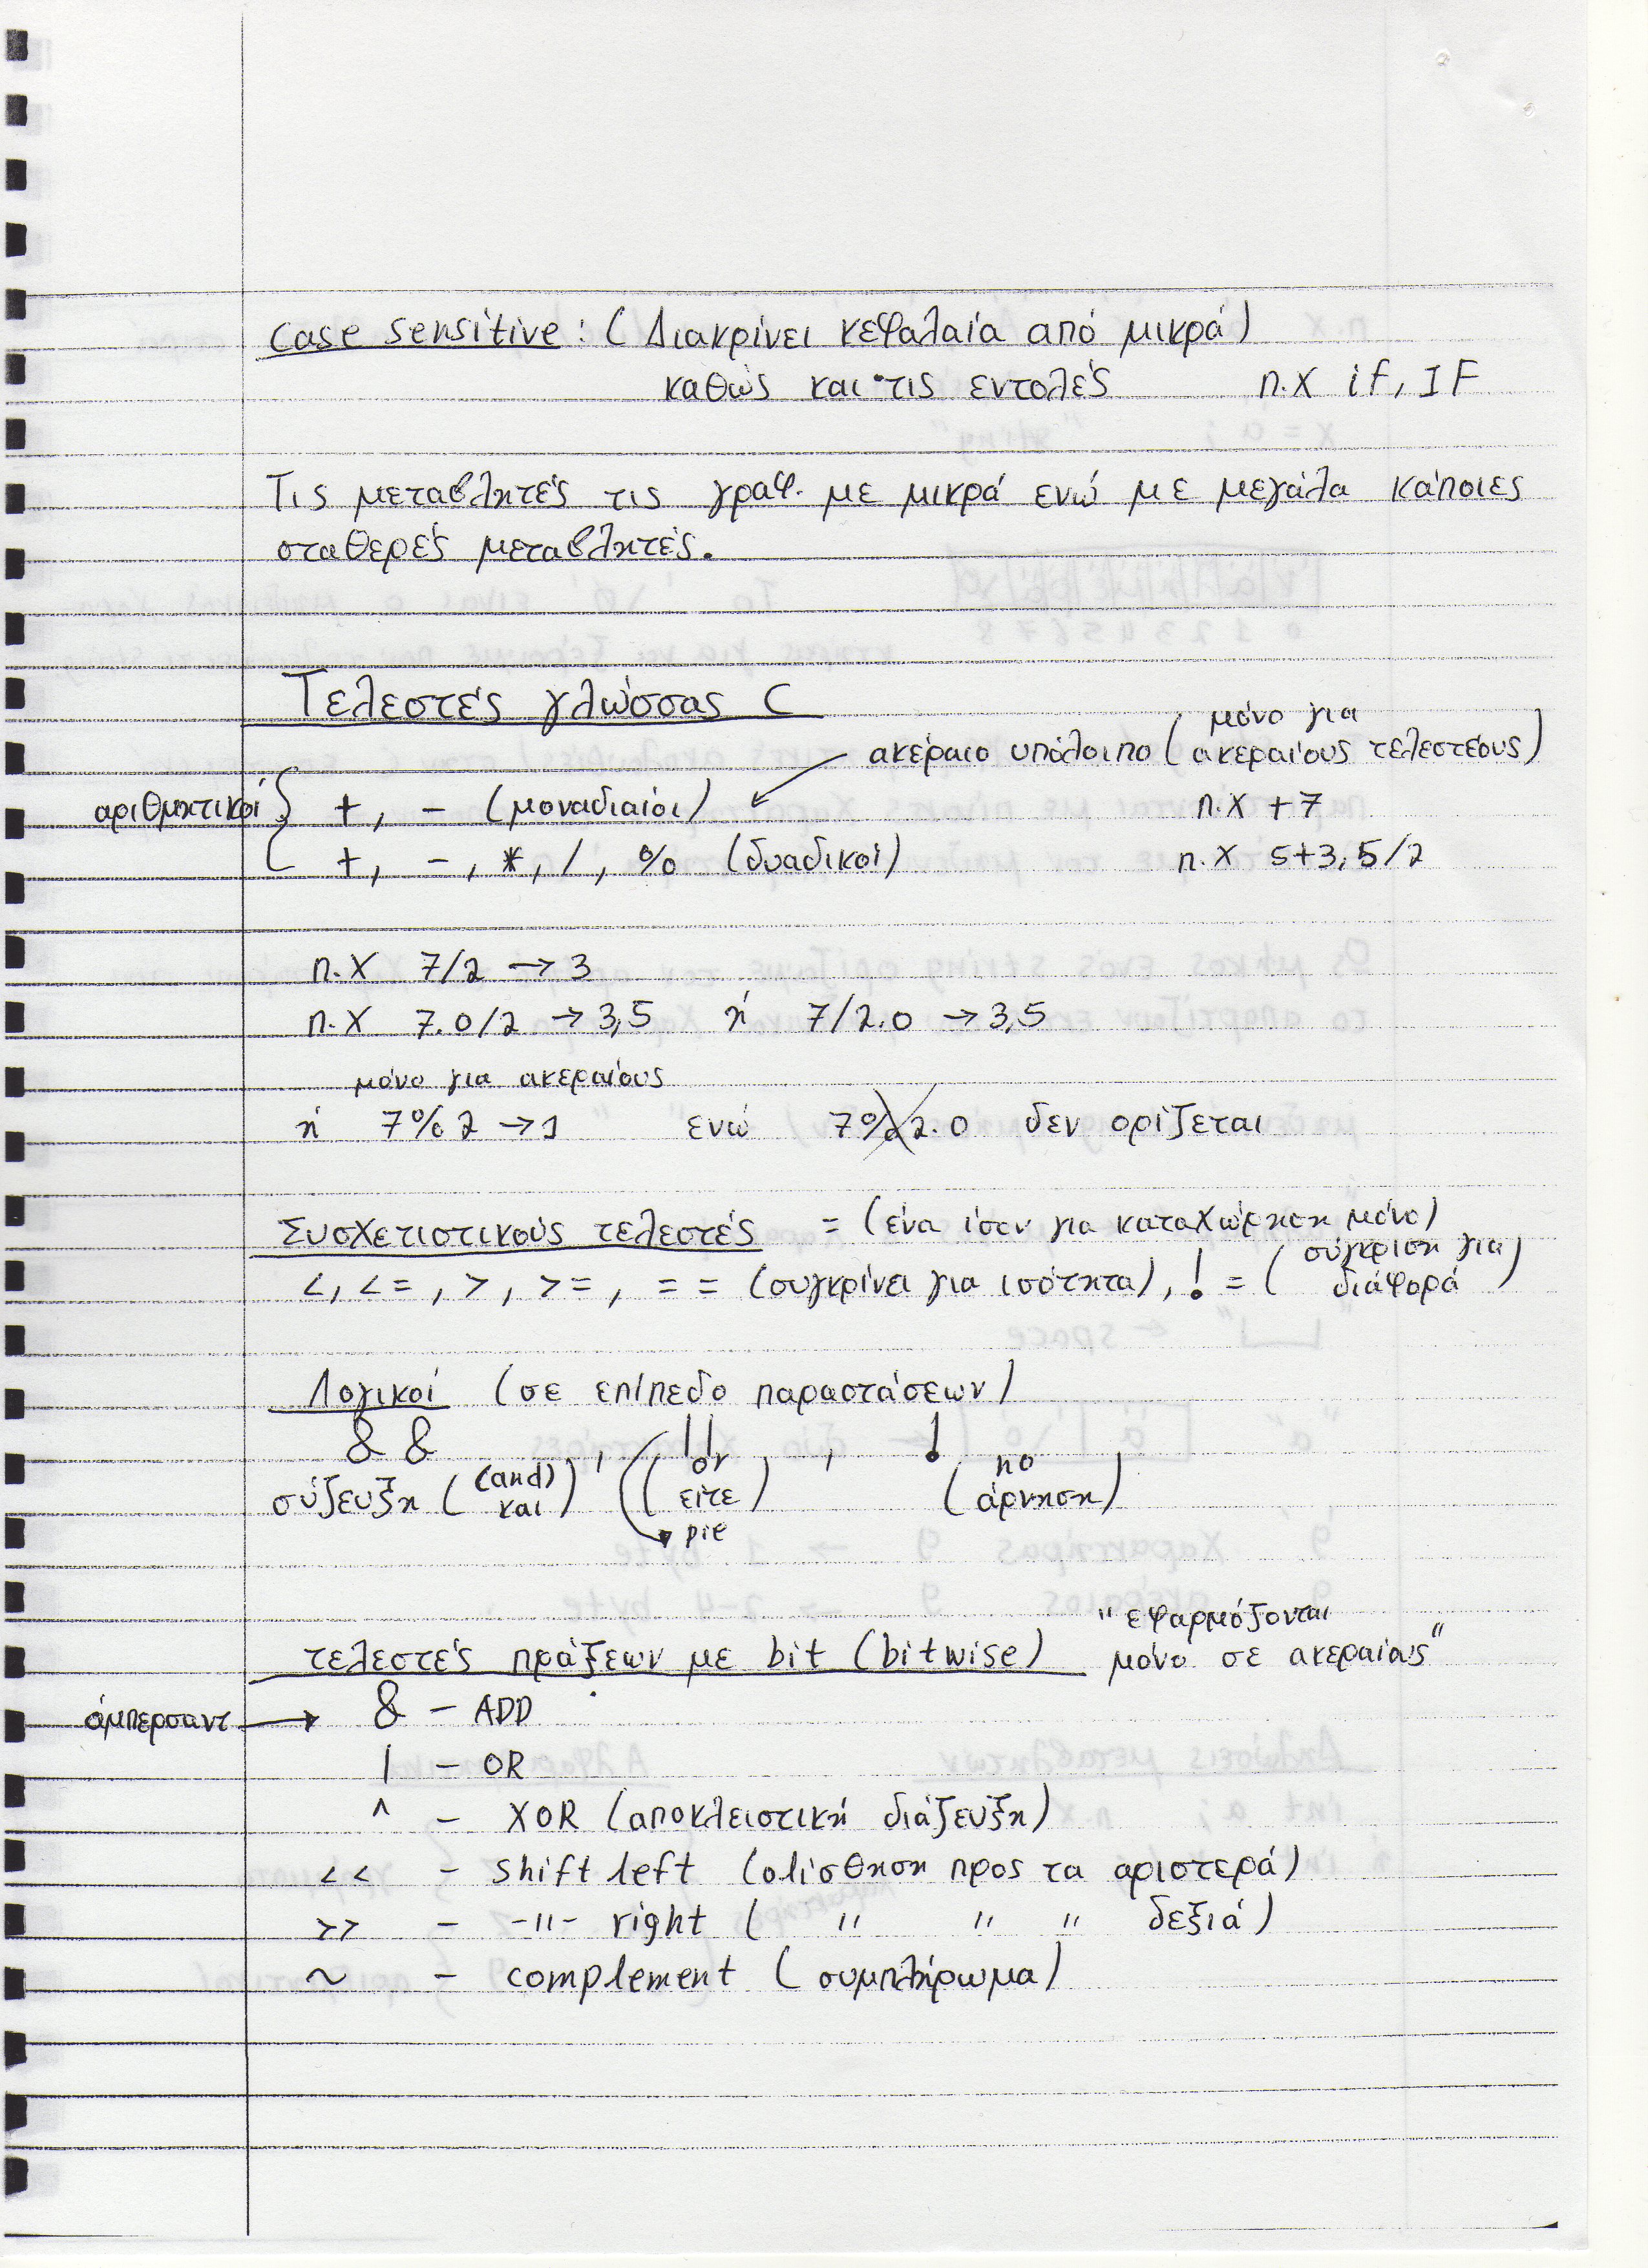 case sensitive : (Διακρίνει κεφαλαία από μικρά)
καθώς και τις εντολές π.χ if, IF
Τις μεταβλητές τις γραφ. με μικρά ενώ με μεγάλα κάποιες
σταθερές μεταβλητές.
Τελεστές γλώσσας C
ακέραιο υπόλοιπο (μόνο για ακεραίους τελεστέους)
αριθμητικοί { +, - (μοναδιαίοι) π.χ +7
+, -, *, /, % (δυαδικοί) π.χ 5+3, 5/2
π.χ 7/2 → 3
π.χ 7.0/2 → 3,5 ή 7/2.0 → 3,5
μόνο για ακεραίους
ή 7%2 → 1 ενώ 7%2.0 δεν ορίζεται
Συσχετιστικούς τελεστές = (ένα ίσον για καταχώρηση μόνο)
<, <=, >, >=, == (συγκρίνει για ισότητα), != (σύγκριση για διάφορά)
Λογικοί (σε επίπεδο παραστάσεων)
&& , || , !
σύζευξη ((and) και) (or είτε) (no άρνηση)
pie
τελεστές πράξεων με bit (bitwise) "εφαρμόζονται μόνο σε ακεραίους"
άμπερσαντ → & - ADD
| - OR
^ - XOR (αποκλειστική διάζευξη)
<< - shift left (ολίσθηση προς τα αριστερά)
>> - -11- right ( " " " δεξιά)
~ - complement (συμπλήρωμα)